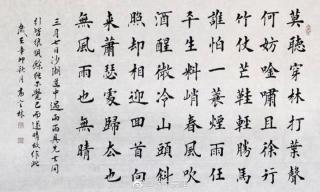 莫聽穿林打葉聲
何妨吟嘯且徐行
竹杖芒鞋輕勝馬
誰怕一蓑煙雨任
平生料峭春風吹
酒醒微冷山頭斜
照却相迎回首向
来蕭瑟處歸去也
無風雨也無晴
三月七日沙湖道中遇雨雨具先去同
行皆狼狽餘獨不覺已而遂晴故作此
辛卯秋月